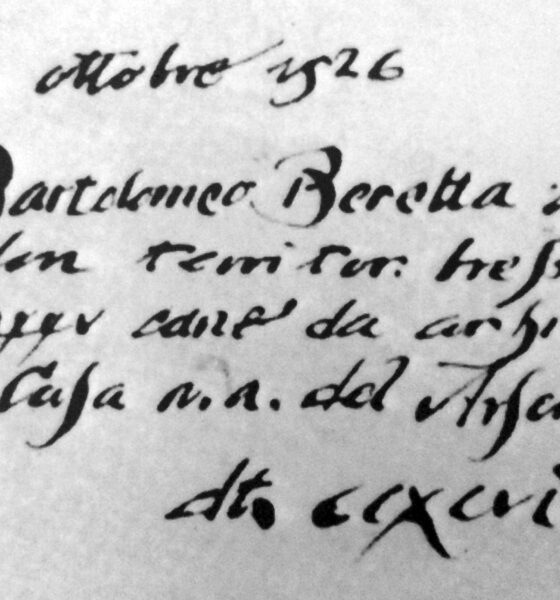 ottobre 1526
Bartolomeo Beretta
territor: bres
cane da
Casa n.a. del Arse
dt. ccxcvi